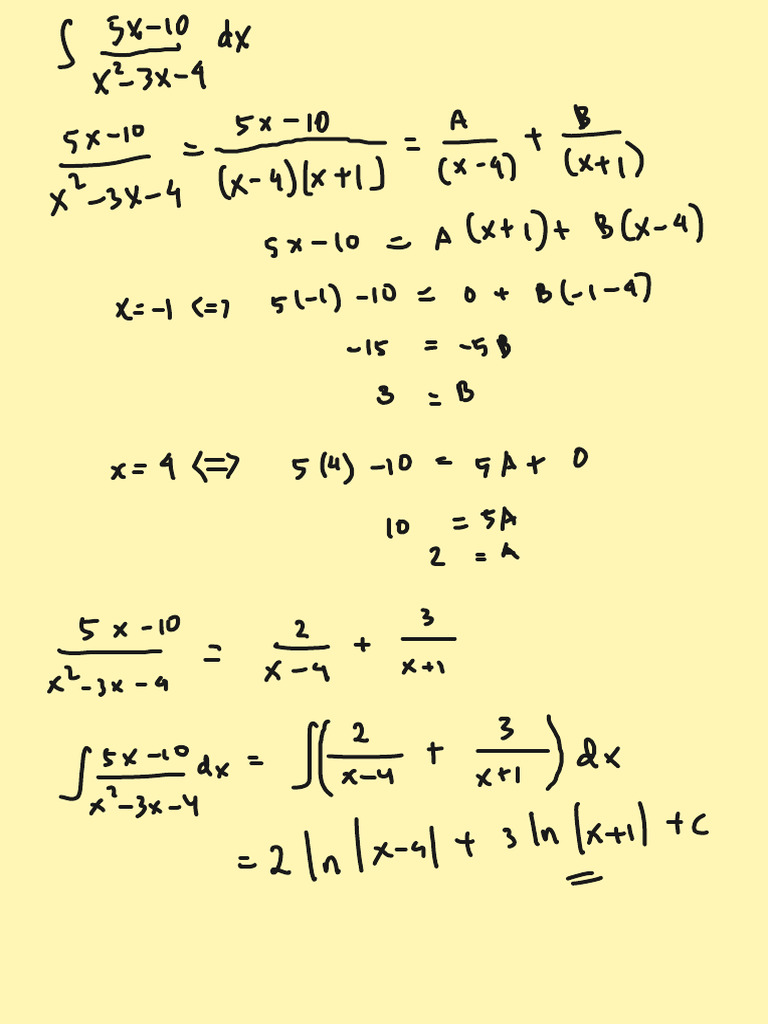 ∫ (5x-10)/(x²-3x-4) dx
(5x-10)/(x²-3x-4) = (5x-10)/((x-4)(x+1)) = A/(x-4) + B/(x+1)
5x-10 = A(x+1)+ B(x-4)
x=-1 <=> 5(-1)-10 = 0 + B(-1-4)
-15 = -5B
3 = B
x=4 <=> 5(4)-10 = 5A + 0
10 = 5A
2 = A
(5x-10)/(x²-3x-4) = 2/(x-4) + 3/(x+1)
∫ (5x-10)/(x²-3x-4) dx = ∫(2/(x-4) + 3/(x+1)) dx
= 2 ln|x-4| + 3 ln|x+1| + C